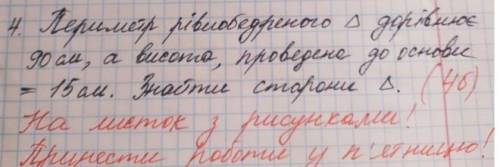 4. Периметр рівнобедреного △ дорівнює
90см, а висота, проведена до основи
= 15см. Знайти сторони △. (4б)
На листок з рисунками!
Принести роботи у п'ятницю!